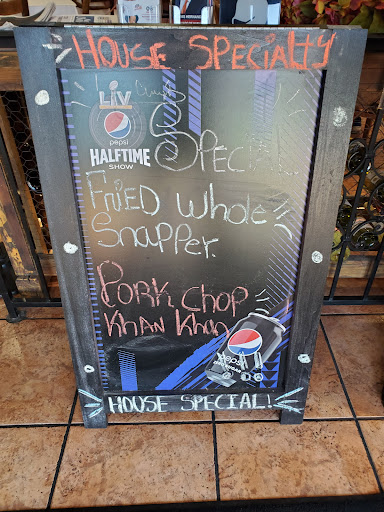 HOUSE SPECIALTY
LIV
pepsi
HALFTIME
SHOW
SPECIAL
FRIED Whole
Snapper.
PORK CHOP
KHAN KHAN
pepsi
HOUSE SPECIAL!